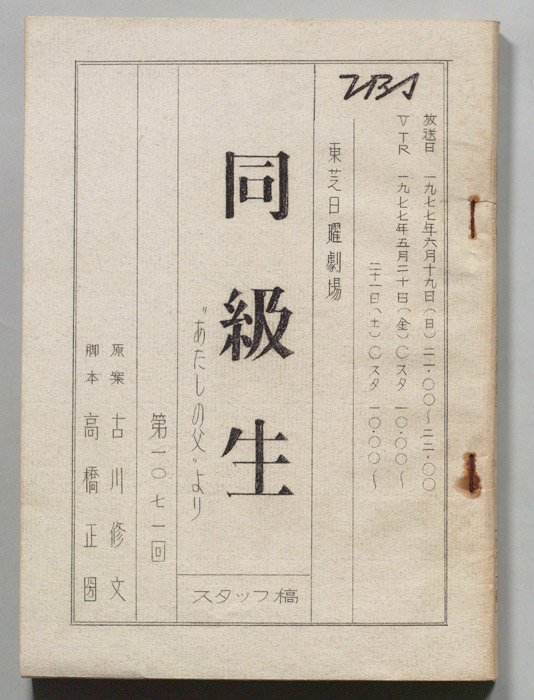 TBS
放送日 一九七七年六月十九日(日)二一・〇〇〜二二・〇〇
VTR 一九七七年五月二十日(金)〇スタ 一〇・〇〇〜
二十一日(土)〇スタ 一〇・〇〇〜
東芝日曜劇場
同級生
"あたしの父"より
スタッフ稿
第一〇七一回
原案 古川修文
脚本 高橋正圀